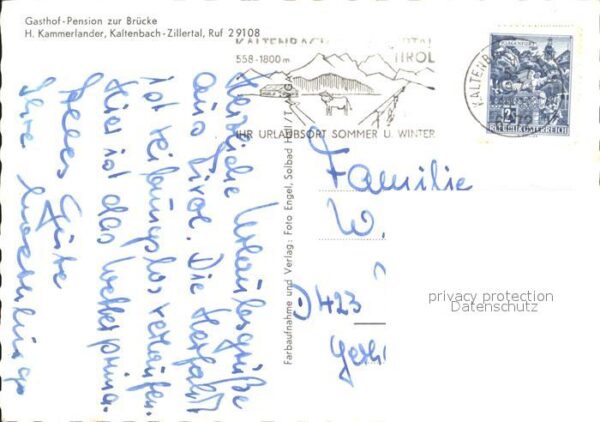 Gasthof-Pension zur Brücke
H. Kammerlander, Kaltenbach-Zillertal, Ruf 29108
KALTENBACH
TIROL
558-1800 m
IHR URLAUBSORT SOMMER U. WINTER
KALTENB
REPUBLIK ÖSTERREICH
Herzliche Urlaubsgrüße
aus Tirol. Die Herfahrt
ist reibungslos verlaufen.
Hier ist das Wetter prima.
Alles Gute
Ihre
Farbaufnahme und Verlag: Foto Engel, Solbad Hall/T.
Familie
W.
D 423
privacy protection
Datenschutz